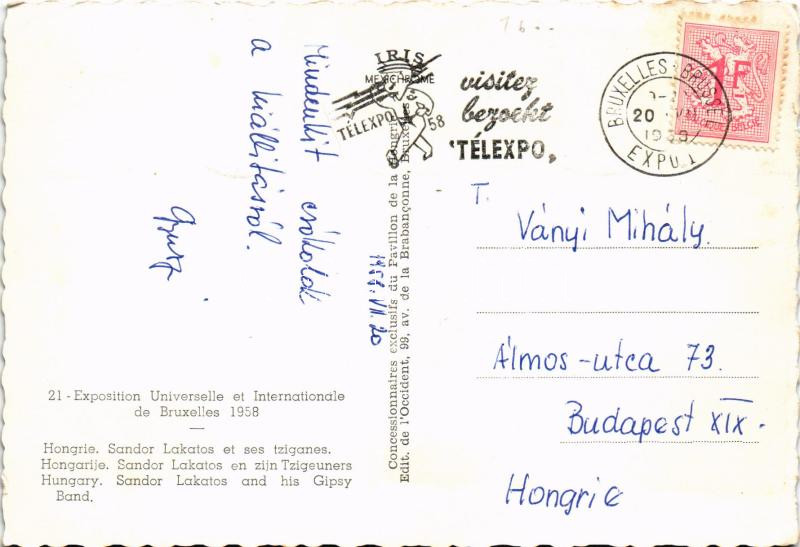 Mindenkit csókolok
a kiállításról.
1958. VII. 20
IRIS
MEXICHROME
TÉLEXPO 58
visitez
bezoekt
"TÉLEXPO"
BRUXELLES-BRUSSEL
20
EXPO 1
1F
T. Ványi Mihály.
Álmos-utca 73.
Budapest XIX.
Hongrie
Concessionnaires exclusifs du Pavillon de la Hongrie
Edit. de l'Occident, 99, av. de la Brabançonne, Bruxelles
21 - Exposition Universelle et Internationale
de Bruxelles 1958
Hongrie. Sandor Lakatos et ses tziganes.
Hongarije. Sandor Lakatos en zijn Tzigeuners
Hungary. Sandor Lakatos and his Gipsy
Band.